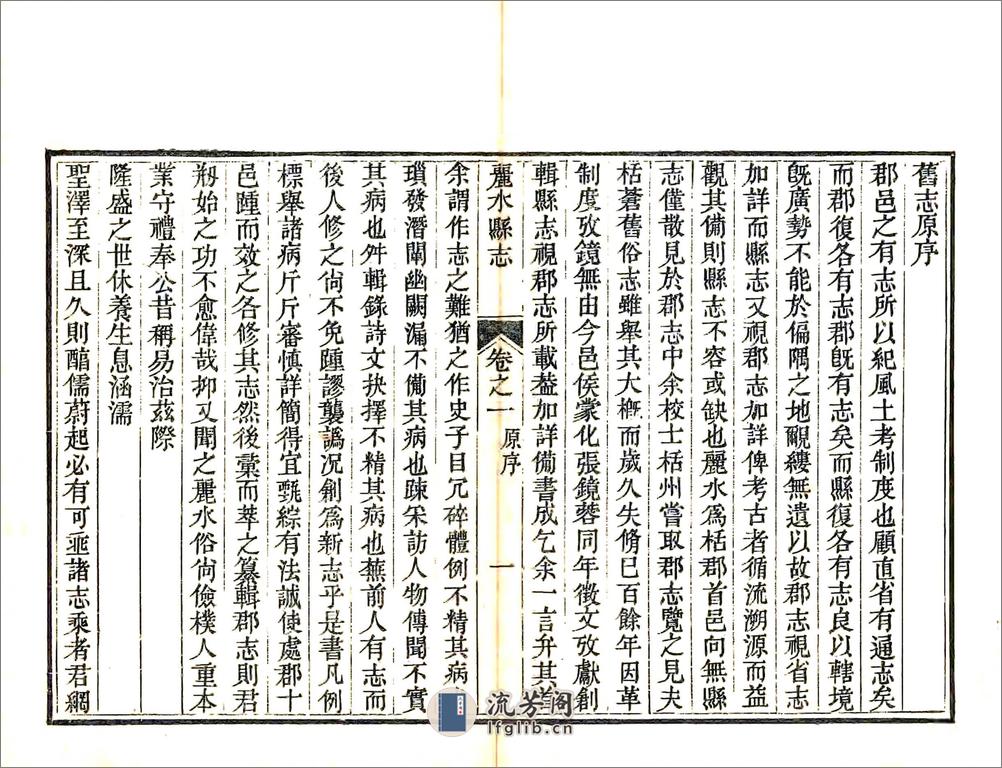 舊志原序
郡邑之有志所以紀風土考制度也顧直省有通志矣
而郡復各有志郡旣有志矣而縣復各有志良以轄境
旣廣勢不能於偏隅之地覼縷無遺以故郡志視省志
加詳而縣志又視郡志加詳俾考古者循流溯源而益
觀其備則縣志不容或缺也麗水爲栝郡首邑向無縣
志僅散見於郡志中余校士栝州嘗取郡志覽之見夫
栝蒼舊俗志雖舉其大槪而歲久失脩巳百餘年因革
制度攷鏡無由今邑侯棠化張鏡蓉同年徵文攷獻創
輯縣志視郡志所載葢加詳備書成乞余一言弁其
麗水縣志
卷之一
原序
一
余謂作志之難猶之作史子目冗碎體例不精其病
瑣發潛闡幽闕漏不備其病也疎采訪人物傳聞不實
其病也舛輯錄詩文抉擇不精其病也蕪前人有志而
後人修之尙不免踵謬襲譌况創爲新志乎是書凡例
標舉諸病斤斤審愼詳簡得宜甄綜有法誠使處郡十
邑踵而效之各修其志然後彙而萃之纂輯郡志則君
剏始之功不愈偉哉抑又聞之麗水俗尙儉樸人重本
業守禮奉公昔稱易治茲際
隆盛之世休養生息涵濡
聖澤至深且久則醕儒蔚起必有可垂諸志乘者君綱
流芳阁
lfglib.cn